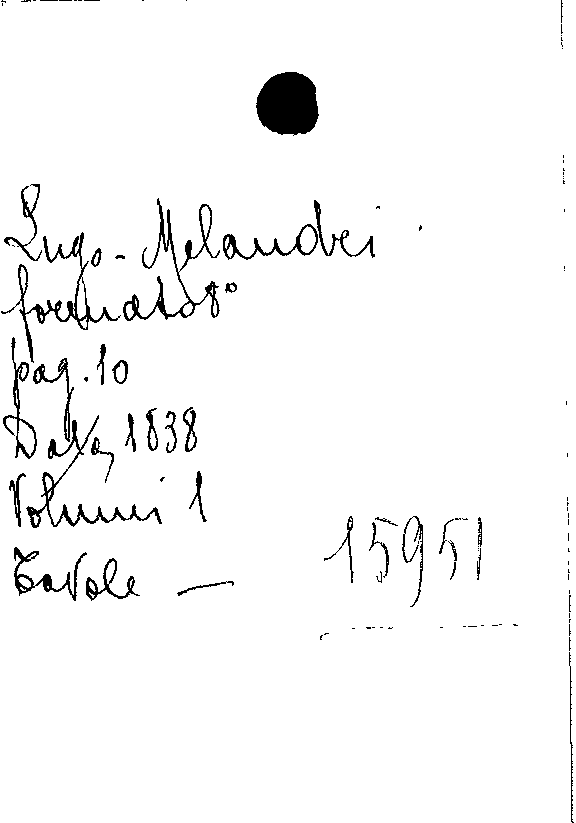 Lugo - Melandri
formato 8°
pag. 10
Data, 1838
Volumi 1
Tavole —
15951